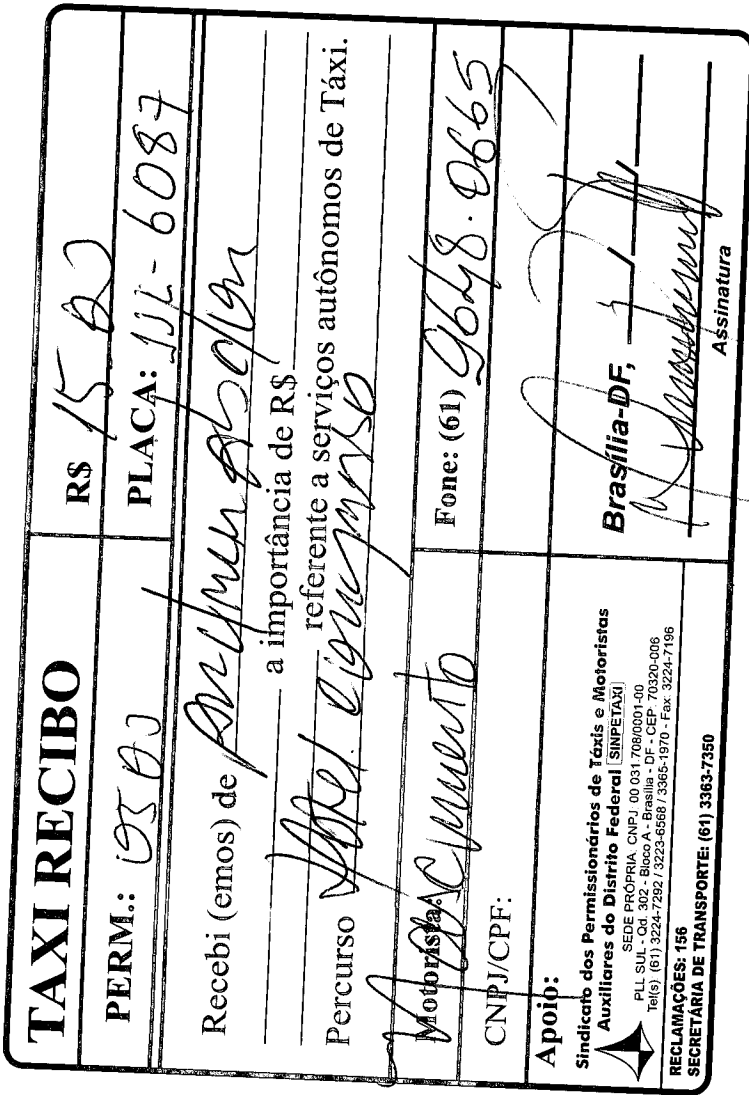 TAXI RECIBO
R$ 15
PERM.:
PLACA: JJL-6087
Recebi (emos) de
a importância de R$
referente a serviços autônomos de Táxi.
Percurso Hotel Congresso
Motorista: Nascimento
Fone: (61) 9648.0665
CNPJ/CPF:
Apoio:
Sindicato dos Permissionários de Táxis e Motoristas
Auxiliares do Distrito Federal SINPETAXI
SEDE PRÓPRIA. CNPJ: 00 031.708/0001-00
PLL SUL - Qd. 302 - Bloco A - Brasília - DF - CEP: 70320-006
Tel(s) (61) 3224-7292 / 3223-6568 / 3365-1970 - Fax: 3224-7196
RECLAMAÇÕES: 156
SECRETÁRIA DE TRANSPORTE: (61) 3363-7350
Brasília-DF, / /
Assinatura